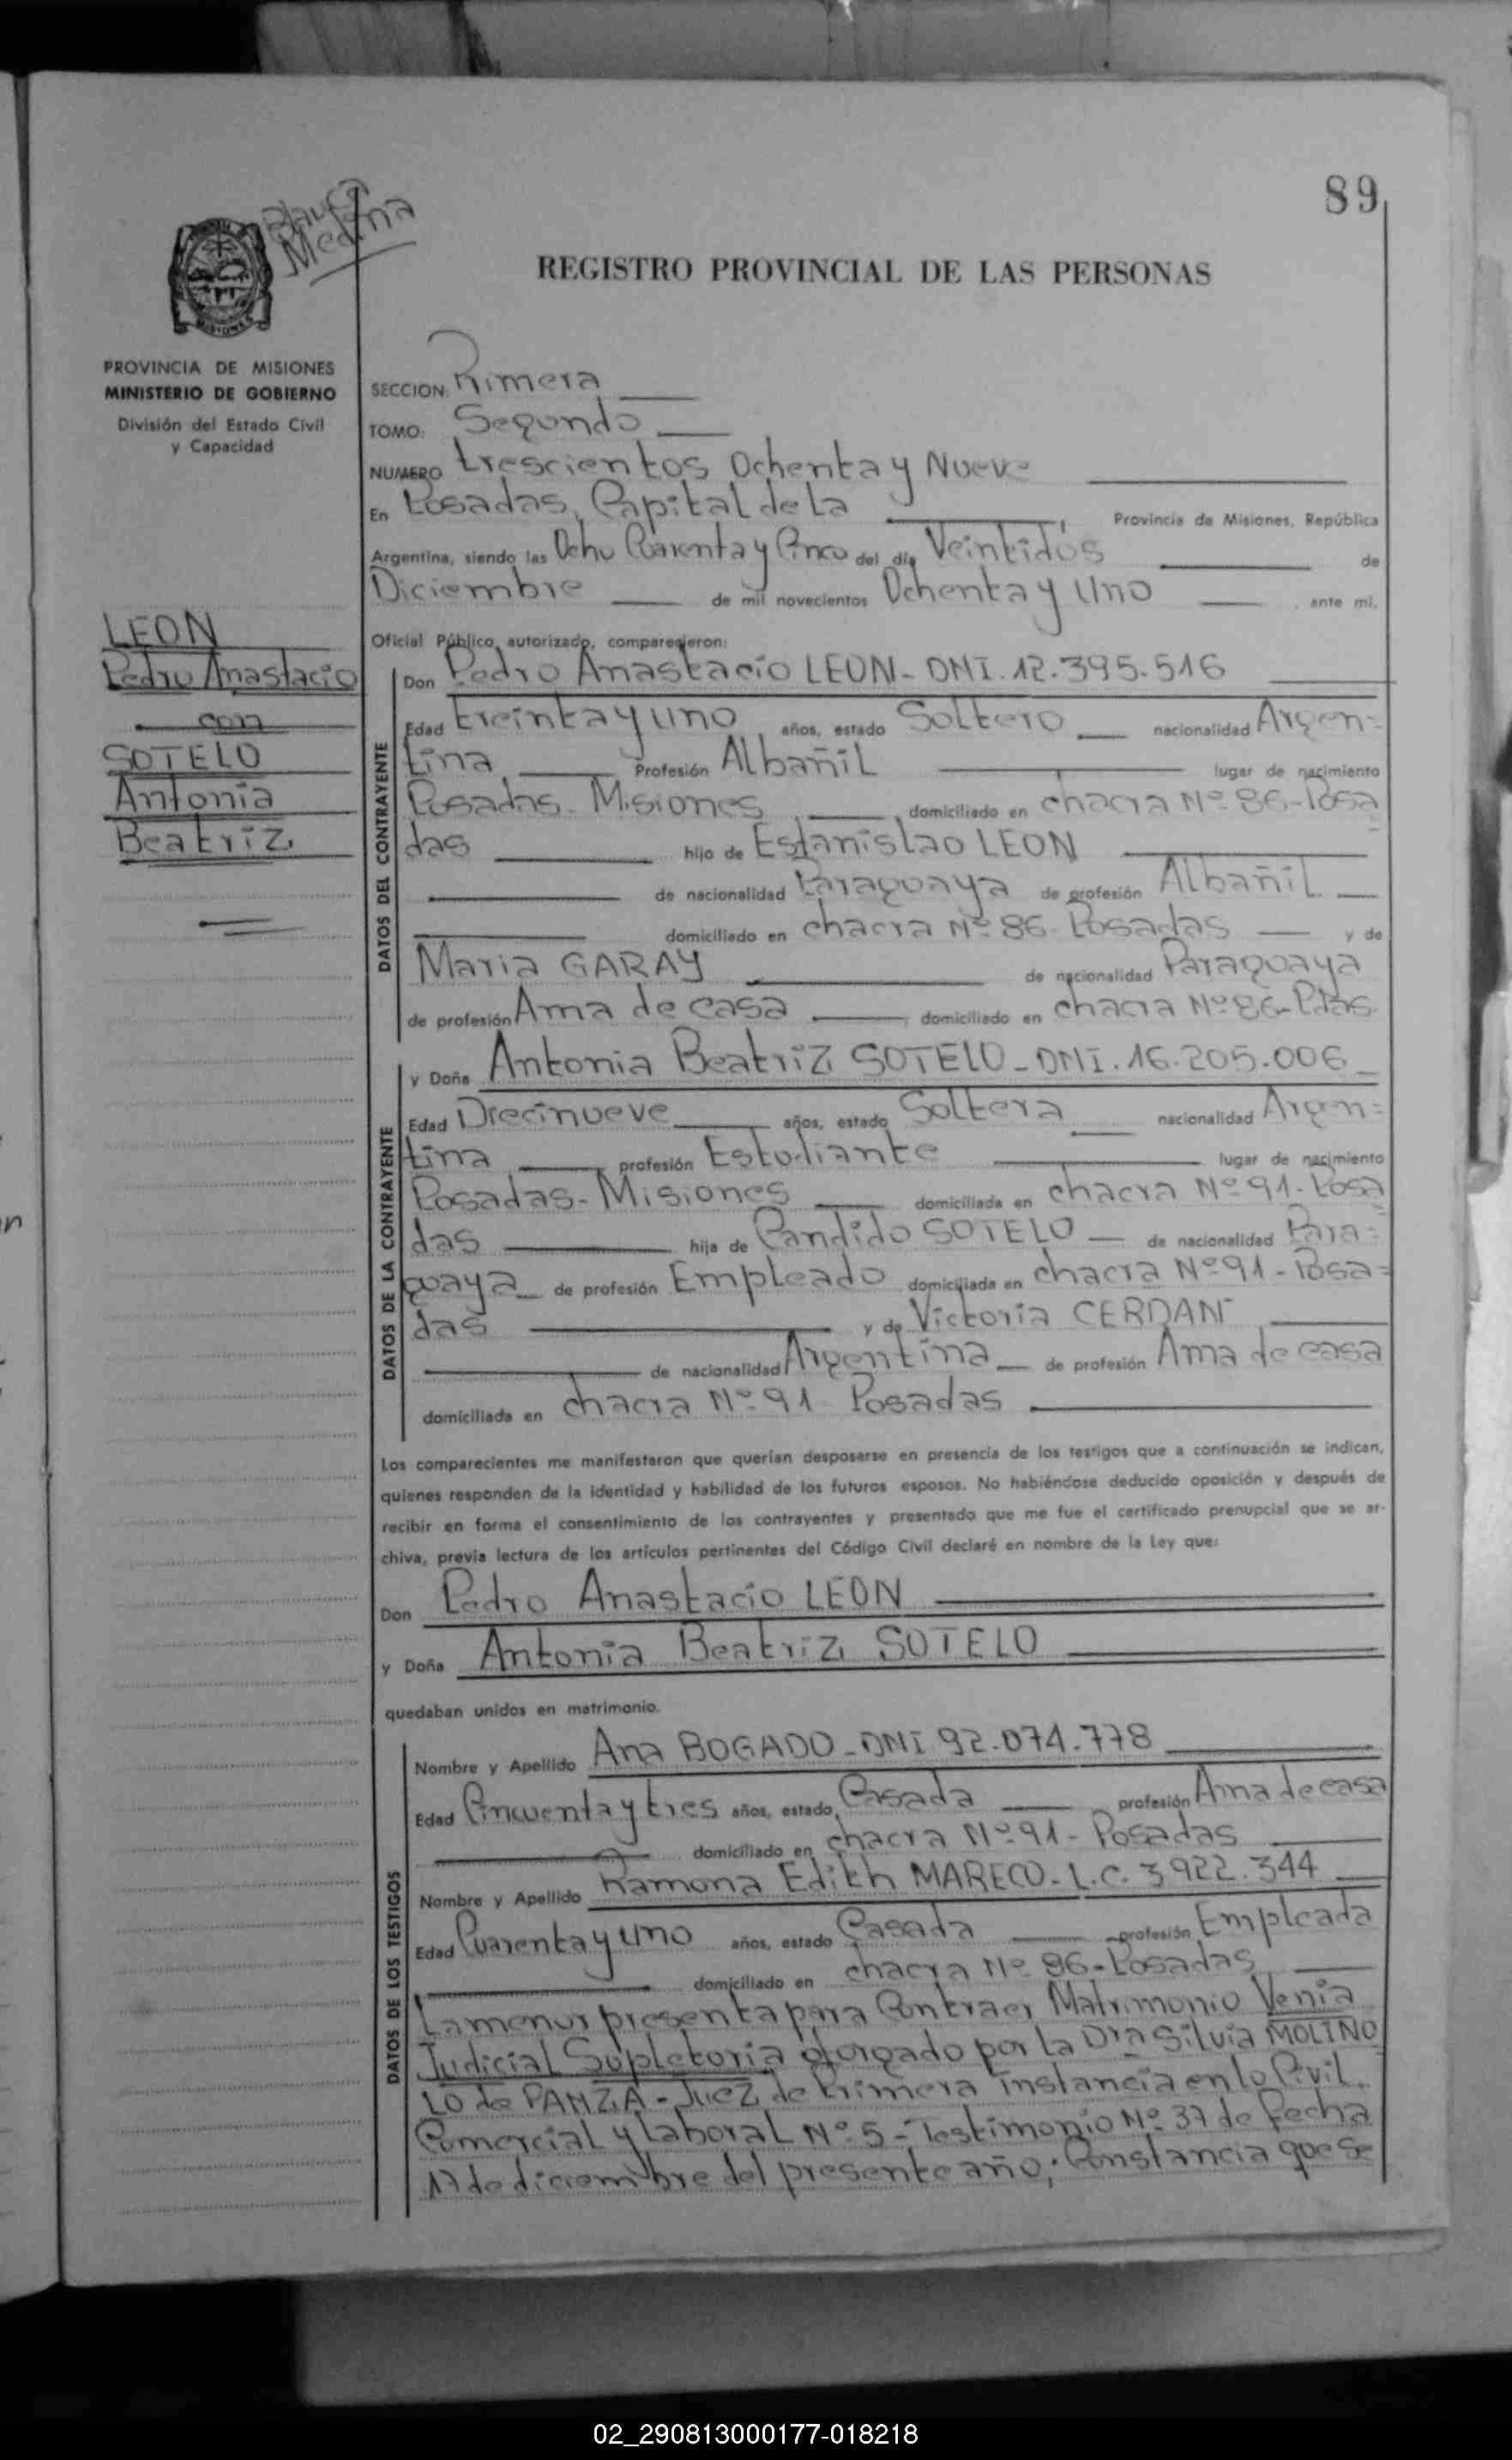 89
Medina
REGISTRO PROVINCIAL DE LAS PERSONAS
MISIONES
PROVINCIA DE MISIONES
MINISTERIO DE GOBIERNO
División del Estado Civil
y Capacidad
SECCION: Primera
TOMO: Segundo
NUMERO trescientos Ochenta y Nueve
En Posadas, Capital de La , Provincia de Misiones, República
Argentina, siendo las Ocho Cuarenta y Cinco del día Veintidós de
Diciembre de mil novecientos Ochenta y Uno , ante mi,
Oficial Público autorizado, comparecieron:
LEON
Pedro Anastacio
con
SOTELO
Antonia
Beatriz
DATOS DEL CONTRAYENTE
Don Pedro Anastacio LEON - DNI. 12.395.516
Edad treinta y uno años, estado Soltero nacionalidad Argen=
tina Profesión Albañil lugar de nacimiento
Posadas - Misiones , domiciliado en chacra Nº 86 - Posa
das hijo de Estanislao LEON
de nacionalidad Paraguaya de profesión Albañil
domiciliado en chacra Nº 86 - Posadas y de
Maria GARAY de nacionalidad Paraguaya
de profesión Ama de casa , domiciliado en chacra Nº 86 - Pdas.
DATOS DE LA CONTRAYENTE
y Doña Antonia Beatriz SOTELO - DNI. 16.205.006
Edad Diecinueve años, estado Soltera nacionalidad Argen=
tina , profesión Estudiante lugar de nacimiento
Posadas - Misiones domiciliada en chacra Nº 91 - Posa
das hija de Candido SOTELO de nacionalidad Para=
guaya de profesión Empleado domiciliada en chacra Nº 91 - Posa=
das y de Victoria CERDAN
de nacionalidad Argentina de profesión Ama de casa
domiciliada en chacra Nº 91 - Posadas
Los comparecientes me manifestaron que querían desposarse en presencia de los testigos que a continuación se indican,
quienes responden de la identidad y habilidad de los futuros esposos. No habiéndose deducido oposición y después de
recibir en forma el consentimiento de los contrayentes y presentado que me fue el certificado prenupcial que se ar-
chiva, previa lectura de los artículos pertinentes del Código Civil declaré en nombre de la Ley que:
Don Pedro Anastacio LEON
y Doña Antonia Beatriz SOTELO
quedaban unidos en matrimonio.
DATOS DE LOS TESTIGOS
Nombre y Apellido Ana BOGADO - DNI 92.074.778
Edad Cincuenta y tres años, estado Casada profesión Ama de casa
domiciliado en chacra Nº 91 - Posadas
Nombre y Apellido Ramona Edith MARECO - L.C. 3922.344
Edad Cuarenta y uno años, estado Casada profesión Empleada
domiciliado en chacra Nº 86 - Posadas
La menor presenta para Contraer Matrimonio Venia
Judicial Supletoria otorgado por La Dra Silvia MOLINO
LO de PANZA - Juez de Primera instancia en lo Civil,
Comercial y Laboral Nº 5 - Testimonio Nº 37 de Fecha
17 de diciembre del presente año; Constancia que se
02_290813000177-018218